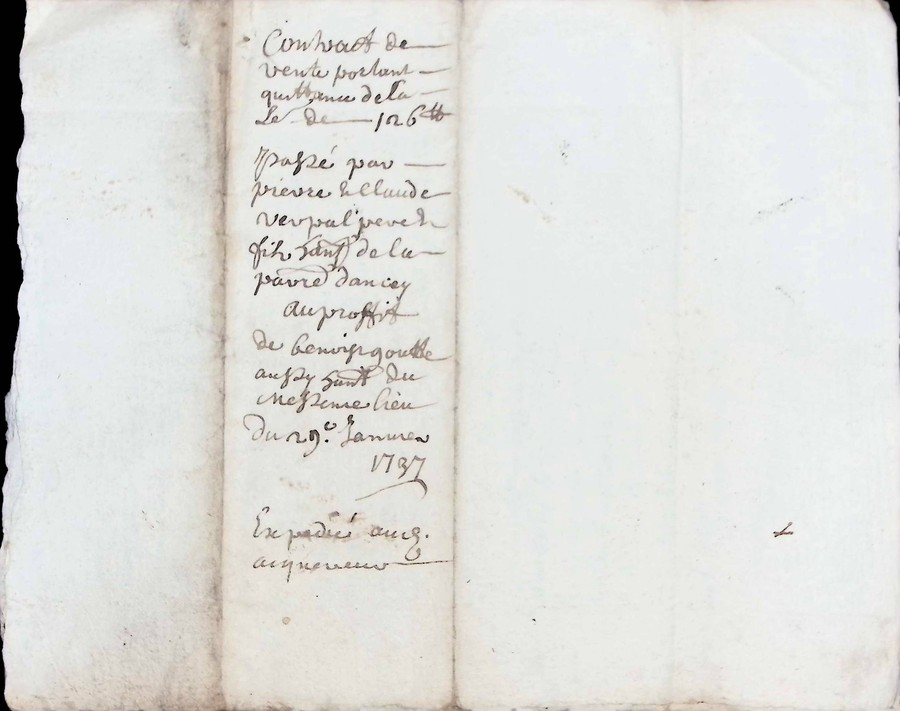 Contract de
vente portant
quittance de la
de 126 tt
passé par
pierre & Claude
verpal pere &
fils hantz de la
parre dancey
au proffit
de benoist goutte
aussy hant du
messme lieu
du 29e Janvier
1737
Expedié aud.
acquereur